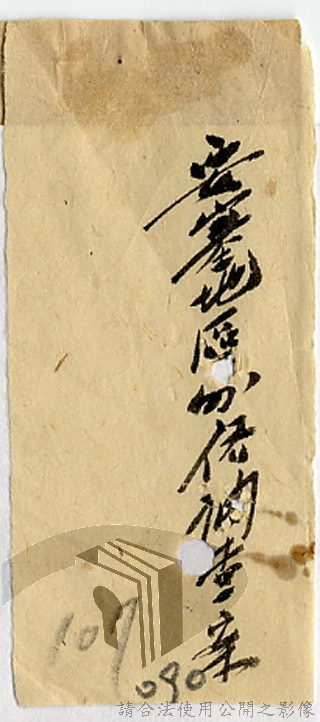 要塞地區外僑調查案
107
090
請合法使用公開之影像